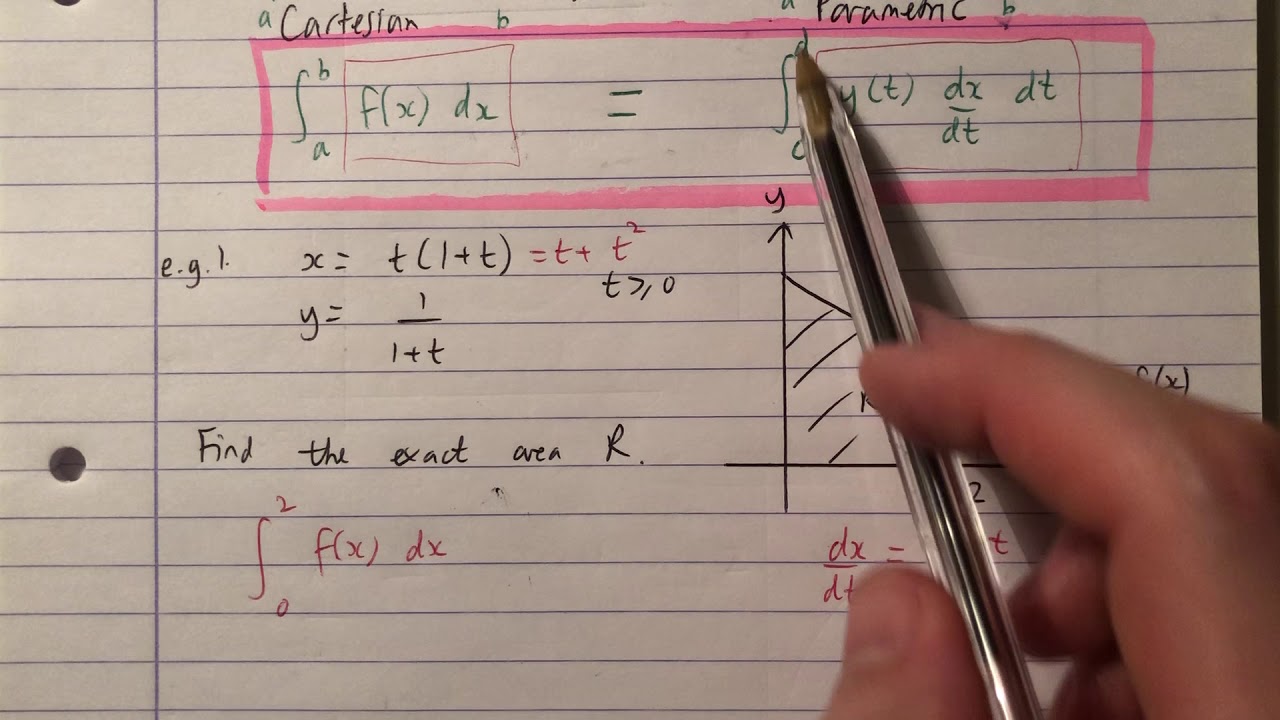 a Cartesian b Parametric b
∫ₐᵇ f(x) dx = ∫ y(t) dx/dt dt
y
e.g.1. x = t(1+t) = t + t²
t ⩾ 0
y = 1/(1+t)
(x)
Find the exact area R.
2
∫₀² f(x) dx
dx/dt = t